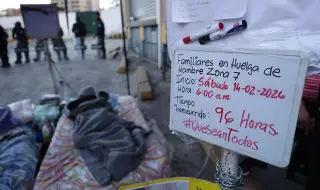 Familiares en Huelga de
Hambre Zona 7
Inicio: Sábado 14-02-2026
Hora: 6:00 a.m.
Tiempo
Transcurrido: 96 Horas.
#QueSeanTodos